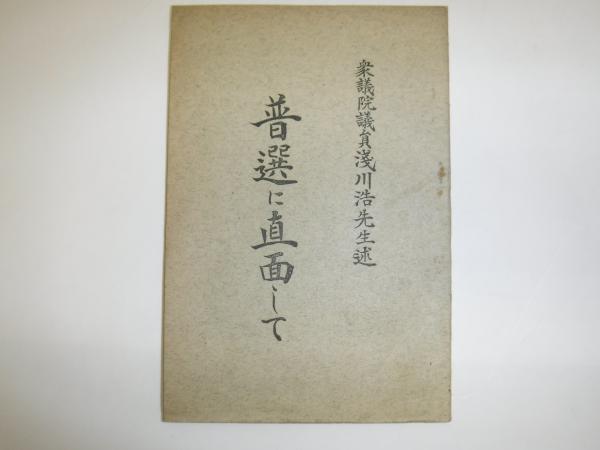 衆議院議員淺川浩先生述
普選に直面して